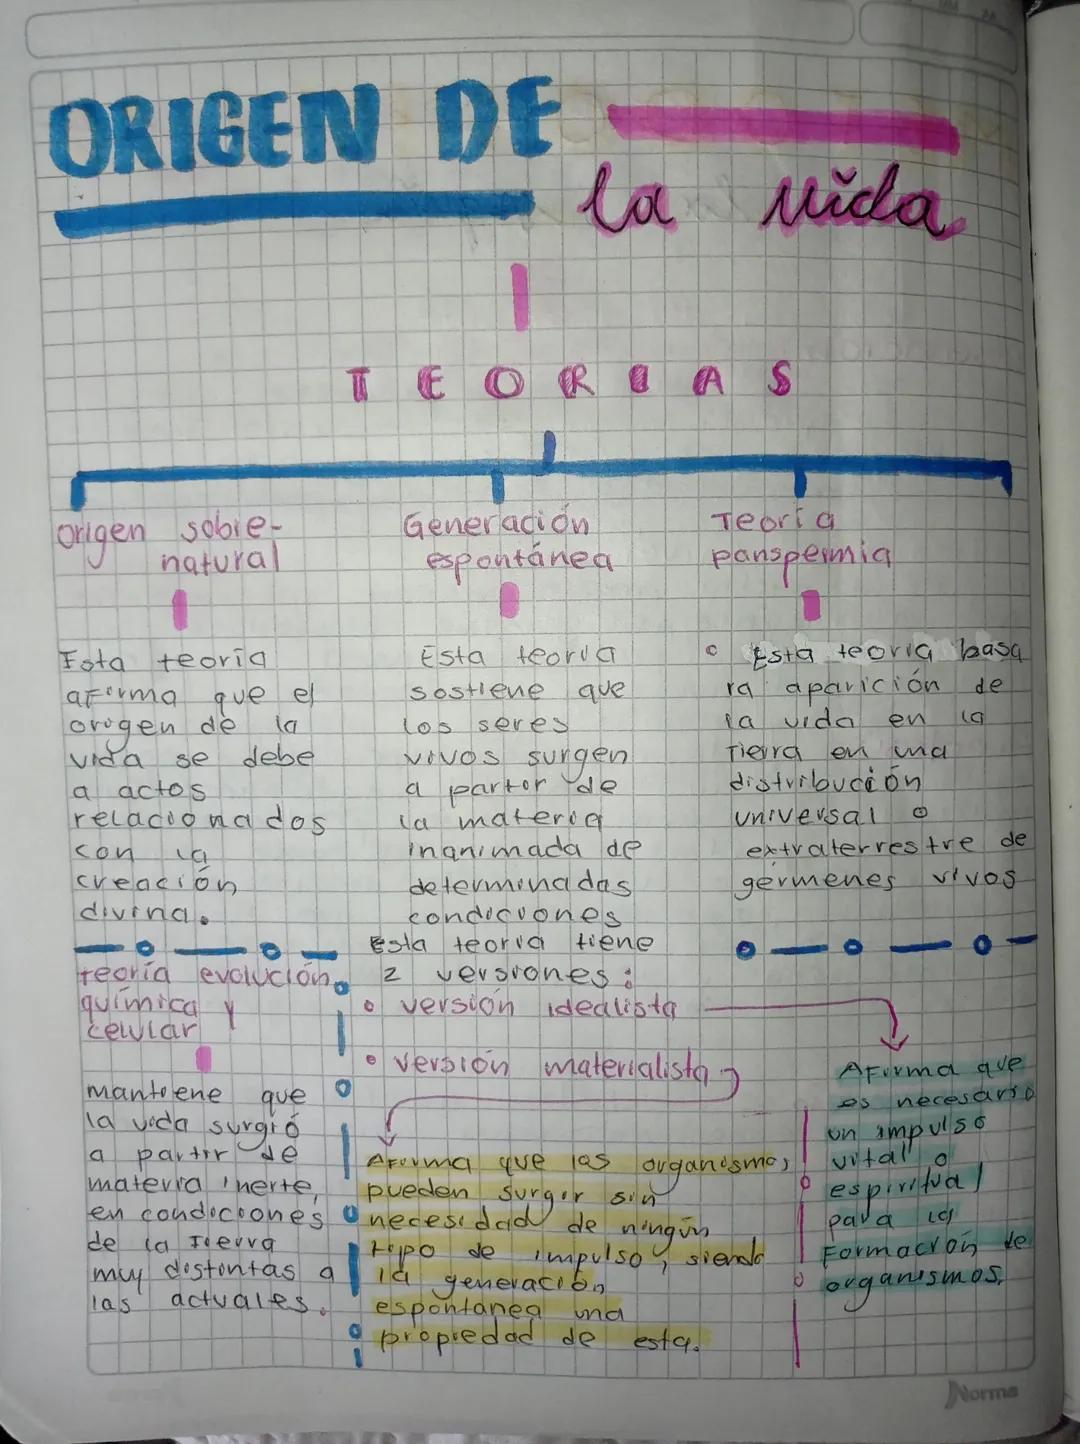 ORIGEN DE
la vida
TEORIAS
origen sobre-
natural
Esta teoría
afirma que el
origen de la
vida se debe
a actos
relacionados
con la
creación
divina.
Generación
espontánea
Esta teoría
sostiene que
los seres
vivos surgen
a partir de
la materia
inanimada de
determinadas
condiciones
Esta teoría tiene
2 versiones:
• versión idealista
• versión materialista
Teoría
panspermia
• Esta teoría basa
ra aparición de
la vida en la
Tierra en una
distribución
universal o
extraterrestre de
gérmenes vivos
teoría evolución
química y
celular
mantiene que
la vida surgió
a partir de
materia inerte,
en condiciones
de la Tierra
muy distintas a
las actuales.
Afirma que los organismos
pueden surgir sin
necesidad de ningún
tipo de impulso, siendo
la generación
espontanea una
propiedad de esta.
Afirma que
es necesario
un impulso
vital o
espiritual
para la
Formación de
organismos.
Norma